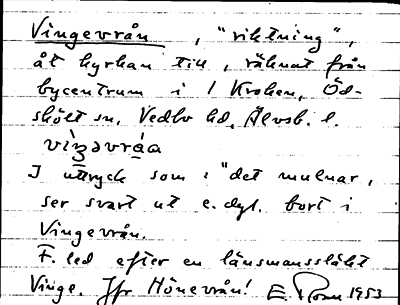 Vingevrån, "riktning",
åt kyrkan till, räknat från
bycentrum i Kroken, Öd-
skölt sn, Vedbo hd, Älvsb. l.
I uttryck som: "det mulnar,
ser svart ut e. dyl. bort i
Vingevrån.
F. led efter en länsmanssläkt
Vinge. Jfr Hönevrån! E. 1953